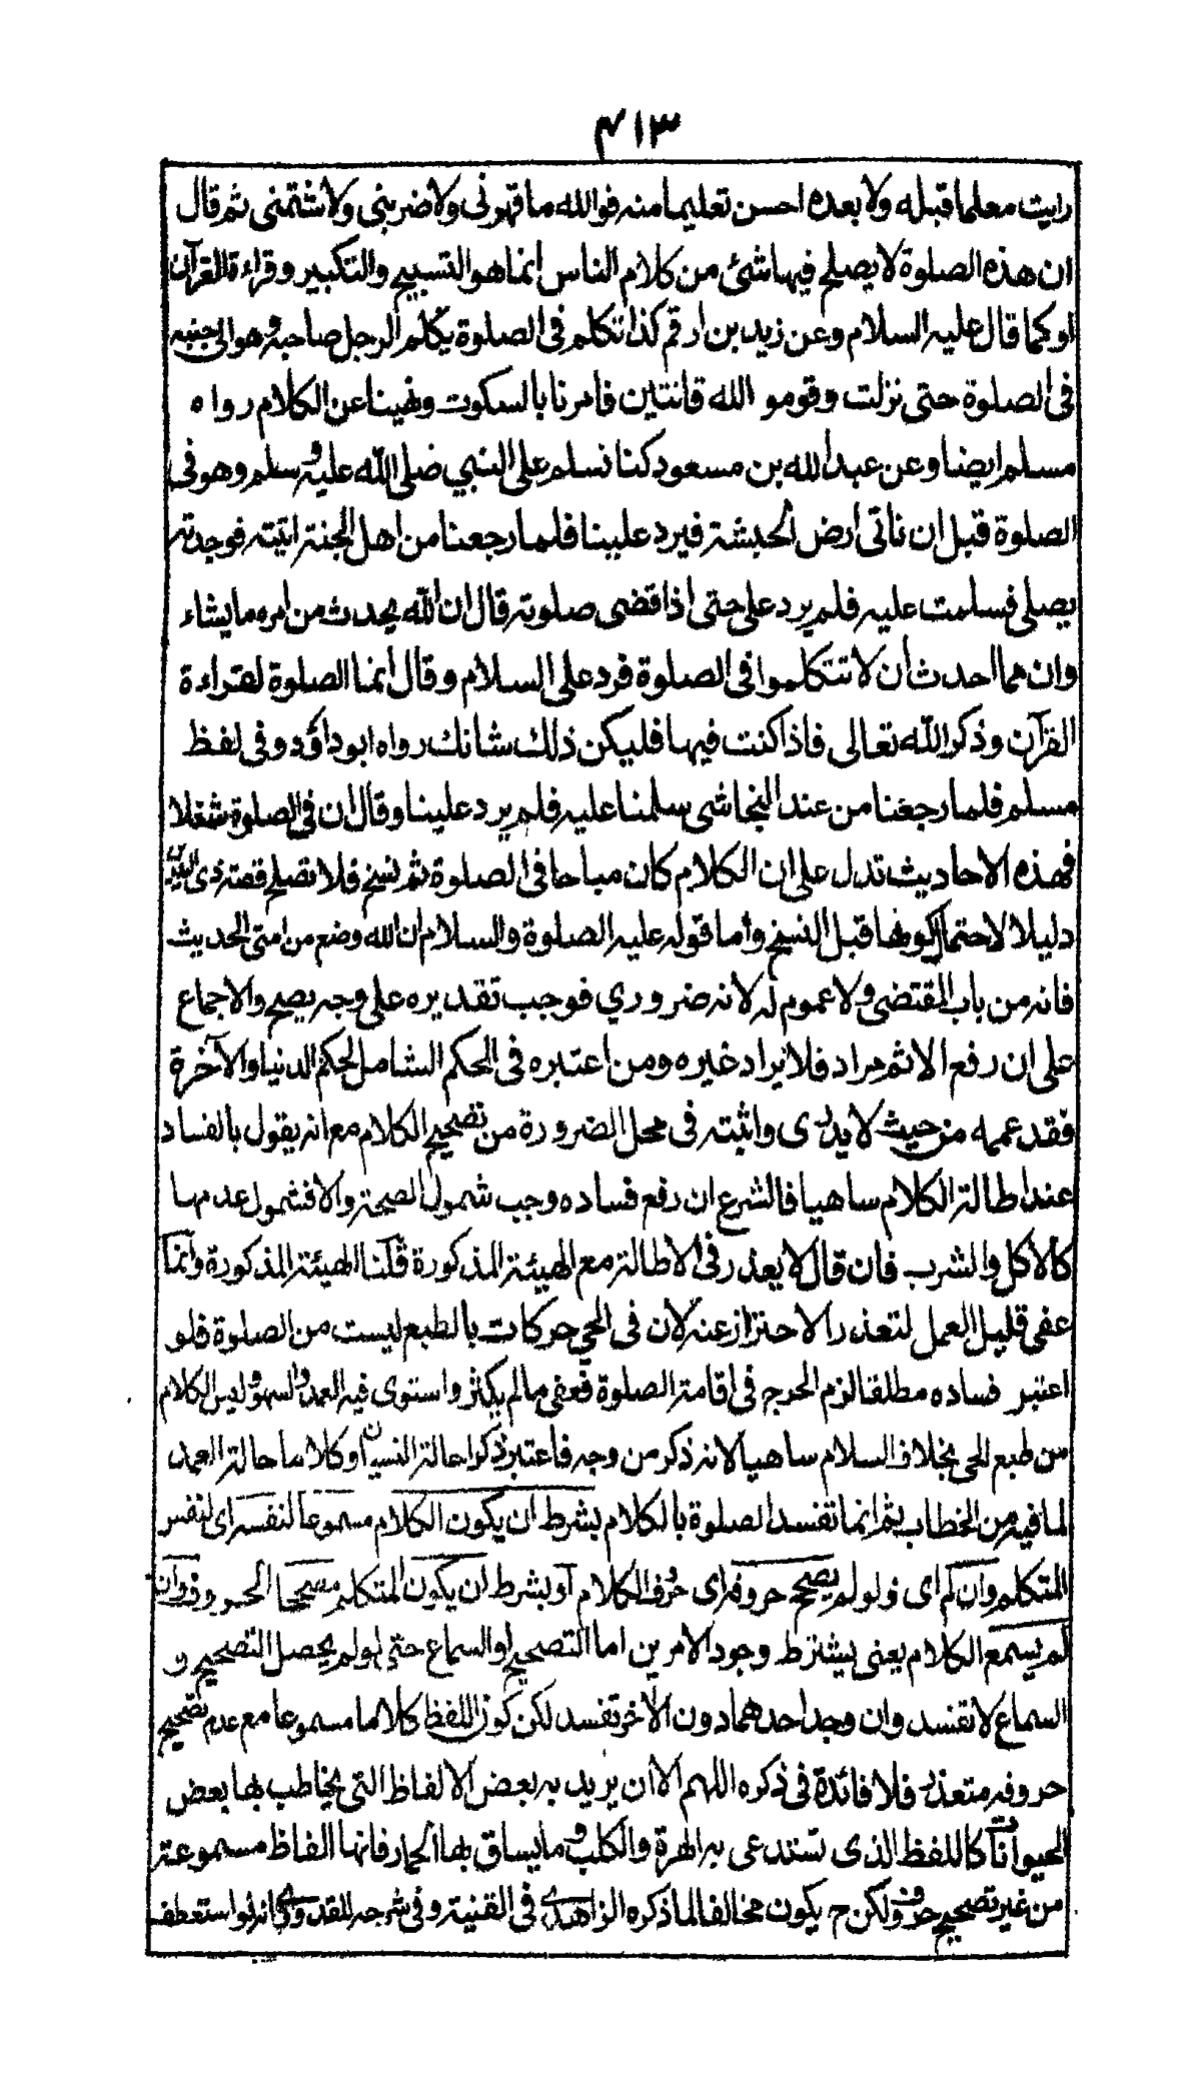 ٤١٣
رايت معلما قبله ولا بعده احسن تعليما منه فوالله ما قهرني ولا ضربني ولا شتمني ثم قال
ان هذه الصلوة لا يصلح فيها شئ من كلام الناس انما هو التسبيح والتكبير وقراءة القرآن
او كما قال عليه السلام وعن زيد بن ارقم كنا نتكلم في الصلوة يكلم الرجل صاحبه وهو الى جنبه
في الصلوة حتى نزلت وقومو الله قانتين فامرنا بالسكوت ونهينا عن الكلام رواه
مسلم ايضا وعن عبد الله بن مسعود كنا نسلم على النبي صلى الله عليه وسلم وهو في
الصلوة قبل ان ناتى ارض الحبشة فيرد علينا فلما رجعنا من اهل الجنة اتيته فوجدته
يصلى فسلمت عليه فلم يرد على حتى اذا قضى صلوته قال ان الله يحدث من امره ما يشاء
وان مما احدث ان لا تتكلموا في الصلوة فرد على السلام وقال انما الصلوة لقراءة
القرآن وذكر الله تعالى فاذا كنت فيها فليكن ذلك شانك رواه ابو داؤد وفى لفظ
مسلم فلما رجعنا من عند النجاشى سلمنا عليه فلم يرد علينا وقال ان في الصلوة شغلا
فهذه الاحاديث تدل على ان الكلام كان مباحا في الصلوة ثم نسخ فلا تصلح قصة ذى اليدين
دليلا لاحتمال كونها قبل النسخ واما قوله عليه الصلوة والسلام ان الله وضع من امتى الحديث
فانه من باب المقتضى ولا عموم له لانه ضروري فوجب تقديره على وجه يصح والاجماع
على ان رفع الاثم مراد فلا يراد غيره ومن اعتبره في الحكم الشامل لحكم الدنيا والآخرة
فقد عممه من حيث لا يدرى واثبته في محل الضرورة من تصحيح الكلام مع انه يقول بالفساد
عند اطالة الكلام ساهيا فالشرع ان رفع فساده وجب شمول الصحة والا فشمول عدمها
كالاكل والشرب فان قال لا يعذر في الاطالة مع الهيئة المذكورة قلنا الهيئة المذكورة وانما
عفى قليل العمل لتعذر الاحتراز عنه لان في الحي حركات بالطبع ليست من الصلوة فلو
اعتبر فساده مطلقا لزم الحرج في اقامة الصلوة فعفى ما لم يكثر واستوى فيه العمد والسهو وليس الكلام
من طبع الحى بخلاف السلام ساهيا لانه ذكر من وجه فاعتبر ذكرا حالة النسيان وكلاما حالة العمد
لما فيه من الخطاب ثم انما تفسد الصلوة بالكلام بشرط ان يكون الكلام مسموعا لنفسه اى لنفس
المتكلم وان لم اى ولو لم يصح حروفه اى حرف الكلام او بشرط ان يكون المتكلم مصححا الحروف وان
لم يسمع الكلام يعنى يشترط وجود الامرين اما التصحيح او السماع حتى لو لم يحصل التصحيح و
السماع لا تفسد وان وجد احدهما دون الآخر تفسد لكن كون اللفظ كلاما مسموعا مع عدم تصحيح
حروفه متعذر فلا فائدة في ذكره اللهم الا ان يريد به بعض الالفاظ التى يخاطب بها بعض
الحيوانات كاللفظ الذى تستدعى به الهرة والكلب وما يساق بها الحمار فانها الفاظ مسموعة
من غير تصحيح حروف ولكن ح يكون مخالفا لما ذكره الزاهدى في القنية وفى شرحه للقدورى انه لو استعطف